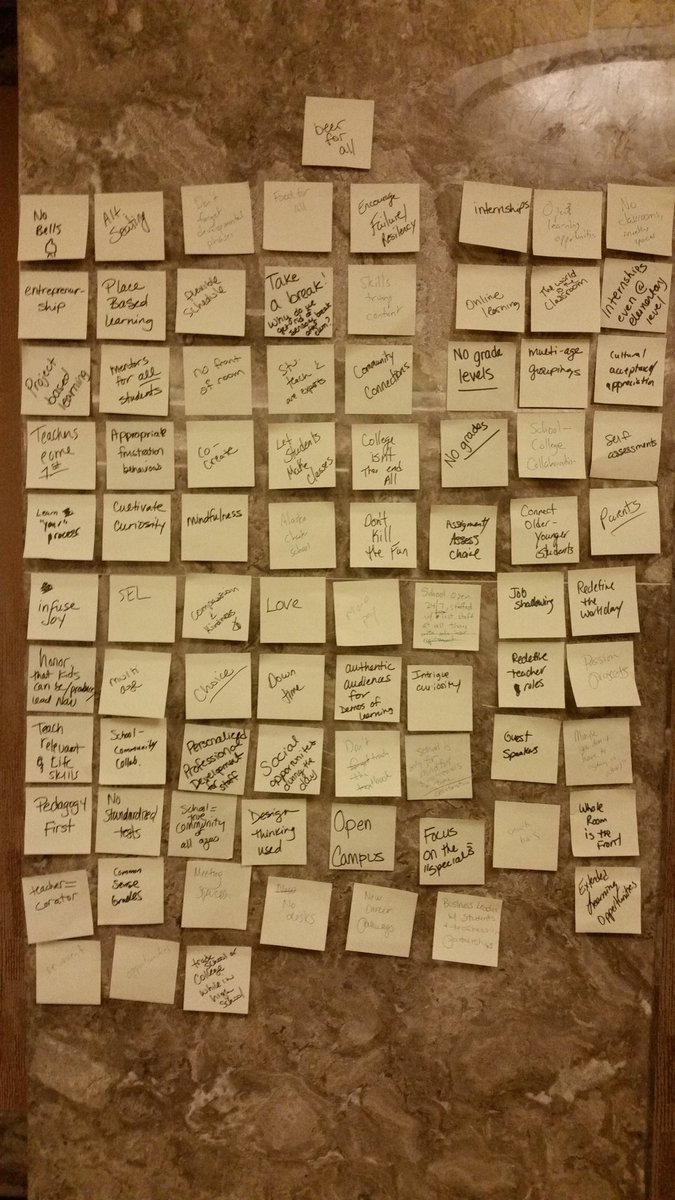 beer
for
all
No
Bells
Alt
Seating
Don't
forget
developmental
phases
Food for
all
Encourage
Failure/
Resiliency
internships
learning
opportunities
No
classrooms,
spaces
entrepreneur-
ship
Place
Based
learning
flexible
schedule
Take
a break!
Why do we
get rid of
sensory break
after
elem?
Skills
trump
content
Online
learning
The world
is the
classroom
Internships
even @
elementary
level
Project
based
learning
mentors
for all
students
no front
of room
Stu.
teach &
are experts
Community
Connections
No grade
levels
multi-age
groupings
cultural
acceptance/
appreciation
Teachers
come
1st
Appropriate
frustration
behaviors
Co-
Create
Let
Students
Make
Classes
College
isn't
the end
All
No grades
School-
College
Collaboration
Self
assessments
Learn
"your"
process
Cultivate
Curiosity
mindfulness
school
Don't
Kill
the Fun
Assignment/
Assess
choice
Connect
Older-
Younger
Students
Parents
infuse
Joy
SEL
Compassion
&
Kindness
Love
More
School Open
24/7, staffed
Job
Shadowing
Redefine
the workday
honor
that kids
can be/produce/
lead NOW
multi
age
Choice
Down
time
authentic
audiences
for
Demos of
learning
Intrigue
curiosity
Redefine
teacher
roles
Passion
Projects
Teach
relevant
& Life
skills
School-
Community
Collab.
Personalized
Professional
Development
for staff
Social
opportunities
during the
day!
Don't
the
School is
Guest
Speakers
Maybe
you don't
have a
Pedagogy
First
No
Standardized
tests
School =
true
Community
of
all ages
Design
thinking
used
Open
Campus
Focus
on the
"specials"
Whole
Room
is the
front!
teacher =
curator
Common
Sense
Grades
Meeting
spaces
No
desks
New
Career
Pathways
Business Leaders
w/ students
partnerships
Extended
Learning
Opportunities
trade
school or
College
while in
high
school